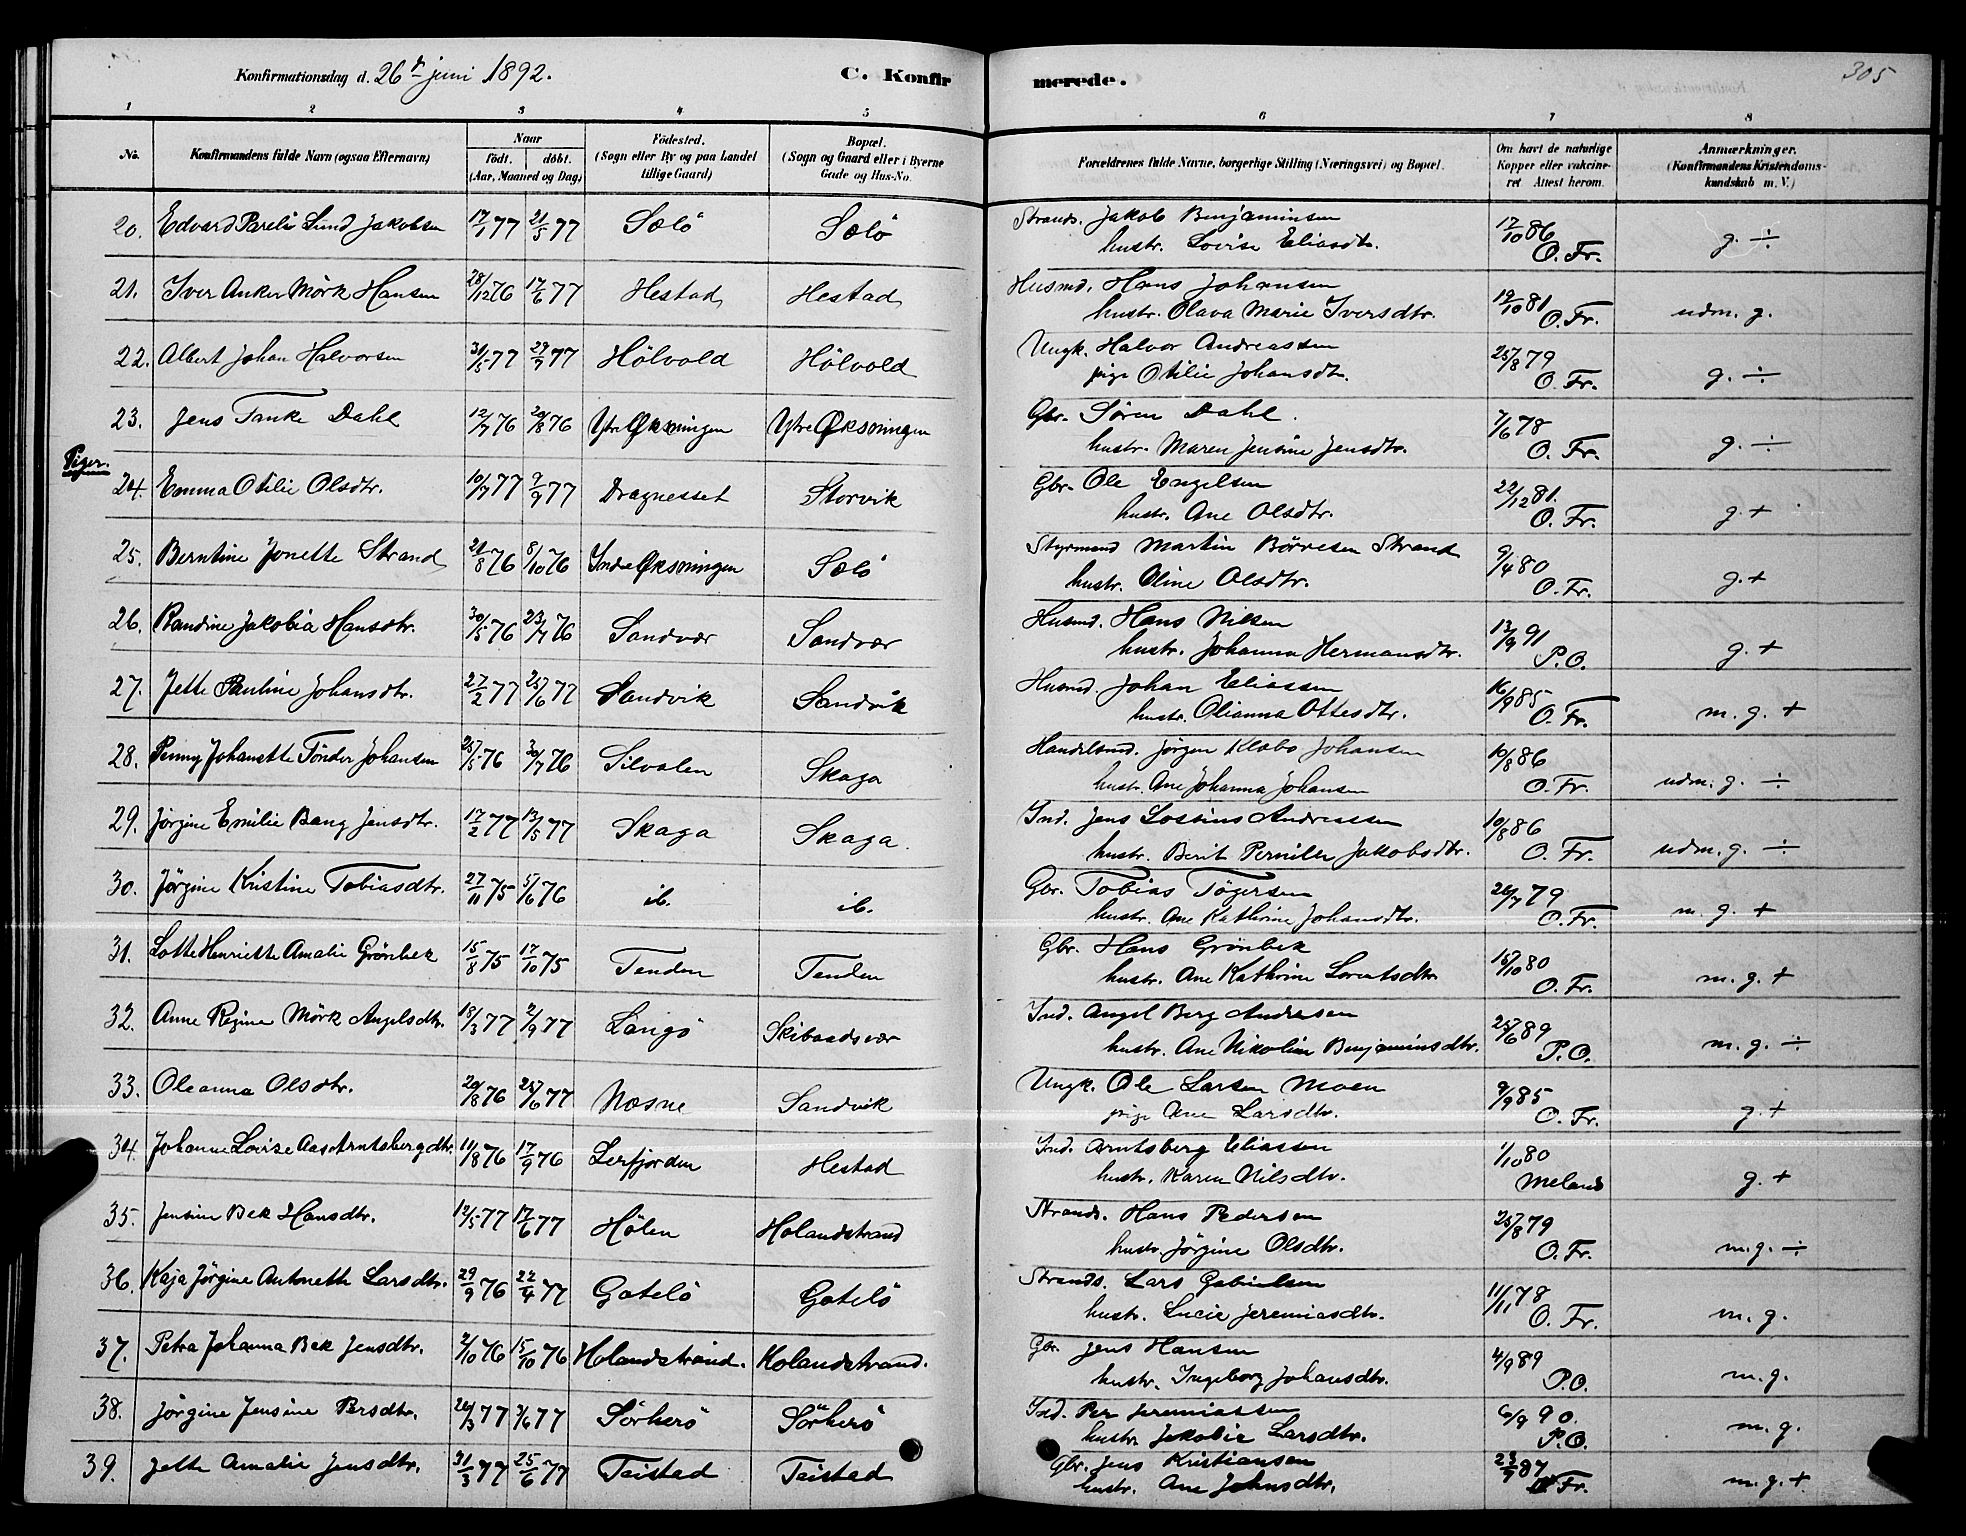 Konfirmationsdag d. 26de juni 1892.
C. Konfirmerede.
305
1 2 3 4 5 6 7 8
No.
Konfirmandens fulde Navn (ogsaa Efternavn)
Naar
födt. döbt.
(Aar, Maaned og Dag)
Födested.
(Sogn eller By og paa Landet
tillige Gaard)
Bopæl.
(Sogn og Gaard eller i Byerne
Gade og Hus-No.
Forældrenes fulde Navne, borgerlige Stilling (Næringsvei) og Bopæl.
Om havt de naturlige
Kopper eller vakcine-
ret. Attest herom.
Anmærkninger.
(Konfirmandens Kristendoms-
kundskab m. V.)
20. Edvard Pareli Lund Jakobsen 17/1 77 21/5 77 Sölö Sölö Strands. Jakob Benjaminsen 17/10 86
hustr. Lovise Eliasdtr. O. Fr. g. ÷
21. Iver Anker Mörk Hansen 28/12 76 17/6 77 Hestad Hestad Husmd. Hans Johansen 19/10 81
hustr. Olava Marie Iversdtr. O. Fr. udm. g.
22. Albert Johan Halvorsen 31/5 77 29/7 77 Hölvold Hölvold Ungk. Halvor Andreassen 25/8 79
pige Otilie Johansdtr. O. Fr. g. ÷
23. Jens Tanke Dahl 12/7 76 20/8 76 Ytre Øksningen Ytre Øksningen Gbr. Sören Dahl. 7/6 78
hustr. Maren Jensine Jensdtr. O. Fr. g. ÷
Piger.
24. Emma Otilie Olsdtr. 10/7 77 2/9 77 Dragnesset Storvik Gbr. Ole Engelsen 22/12 81.
hustr. Ane Olsdtr. O. Fr. g. +
25. Berntine Jonette Strand 21/8 76 8/10 76 Indre Øksningen Sölö Styrmand Martin Börresen Strand 9/4 80
hustr. Oline Olsdtr. O. Fr. g. +
26. Randine Jakobia Hansdtr. 30/5 76 23/7 76 Sandvær Sandvær Husmd. Hans Nilsen 13/9 91
hustr. Johanna Hermansdtr. P. O. g. +
27. Jette Pauline Johansdtr. 27/2 77 25/6 77 Sandvik Sandvik Husmd. Johan Eliassen 16/9 85
hustr. Olianna Ottesdtr. O. Fr. m. g. +
28. Penny Johanette Tönder Johansen 25/5 76 30/7 76 Silvalen Skaga Handelsmd. Jörgen Klæbo Johansen 10/8 86
hustr. Ane Johanna Johansen O. Fr. udm. g. ÷
29. Jörgine Emilie Bang Jensdtr. 17/2 77 13/5 77 Skaga Skaga. Ind. Jens Andreassen 10/8 86
hustr. Berit Pernille Jakobsdtr. O. Fr. udm. g. ÷
30. Jörgine Kristine Tobiasdtr. 27/11 75 5/6 76 ib. ib. Gbr. Tobias Tögersen 26/7 79
hustr. Ane Kathrine Johansdtr. O. Fr. m. g. +
31. Lotte Henriette Amalie Grönbek 15/8 75 17/10 75 Tenden Tenden Gbr. Hans Grönbek 15/10 80
hustr. Ane Kathrine Lorentsdtr O. Fr. m. g. +
32. Anne Regine Mörk Angelsdtr. 18/3 77 2/9 77 Langö Skibaadsvær Ind. Angel Berg Andresen 25/6 89
hustr. Ane Nikoline Benjaminsdtr. P. O. m. g. ÷
33. Oleanna Olsdtr. 20/8 76 25/6 77 Næsne Sandvik Ungk. Ole Larsen Moen 9/9 85
pige Ane Larsdtr. O. Fr. g. +
34. Johanne Lovise Aas Arntsbergdtr. 11/8 76 17/9 76 Lerfjorden Hestad Ind. Arntsberg Eliassen 1/10 80
hustr. Karen Nilsdtr. Meland g. +
35. Jensine Bek Hansdtr. 12/5 77 17/6 77 Hölen Holandstrand Strands. Hans Pedersen 25/8 79
hustr. Jörgine Olsdtr. O. Fr. m. g. ÷
36. Kaja Jörgine Antonette Larsdtr. 29/9 76 22/4 77 Gåtelö Gåtelö Strands. Lars Gabrielsen 11/11 78
hustr. Lucie Jeremiasdtr. O. Fr. m. g.
37. Petra Johanna Bek Jensdtr. 2/10 76 15/10 76 Holandstrand. Holandstrand. Gbr. Jens Hansen 4/9 89
hustr. Ingeborg Johansdtr. P. O. m. g.
38. Jörgine Jensine Persdtr. 26/3 77 3/6 77 Sörherö Sörherö Ind. Per Jeremiassen 6/9 90.
hustr. Jakobie Larsdtr. P. O. m. g.
39. Jette Amalie Jensdtr. 31/3 77 25/6 77 Teistad Teistad Gbr. Jens Kristiansen 23/9 87
hustr. Ane Johnsdtr. Fr. m. g. +